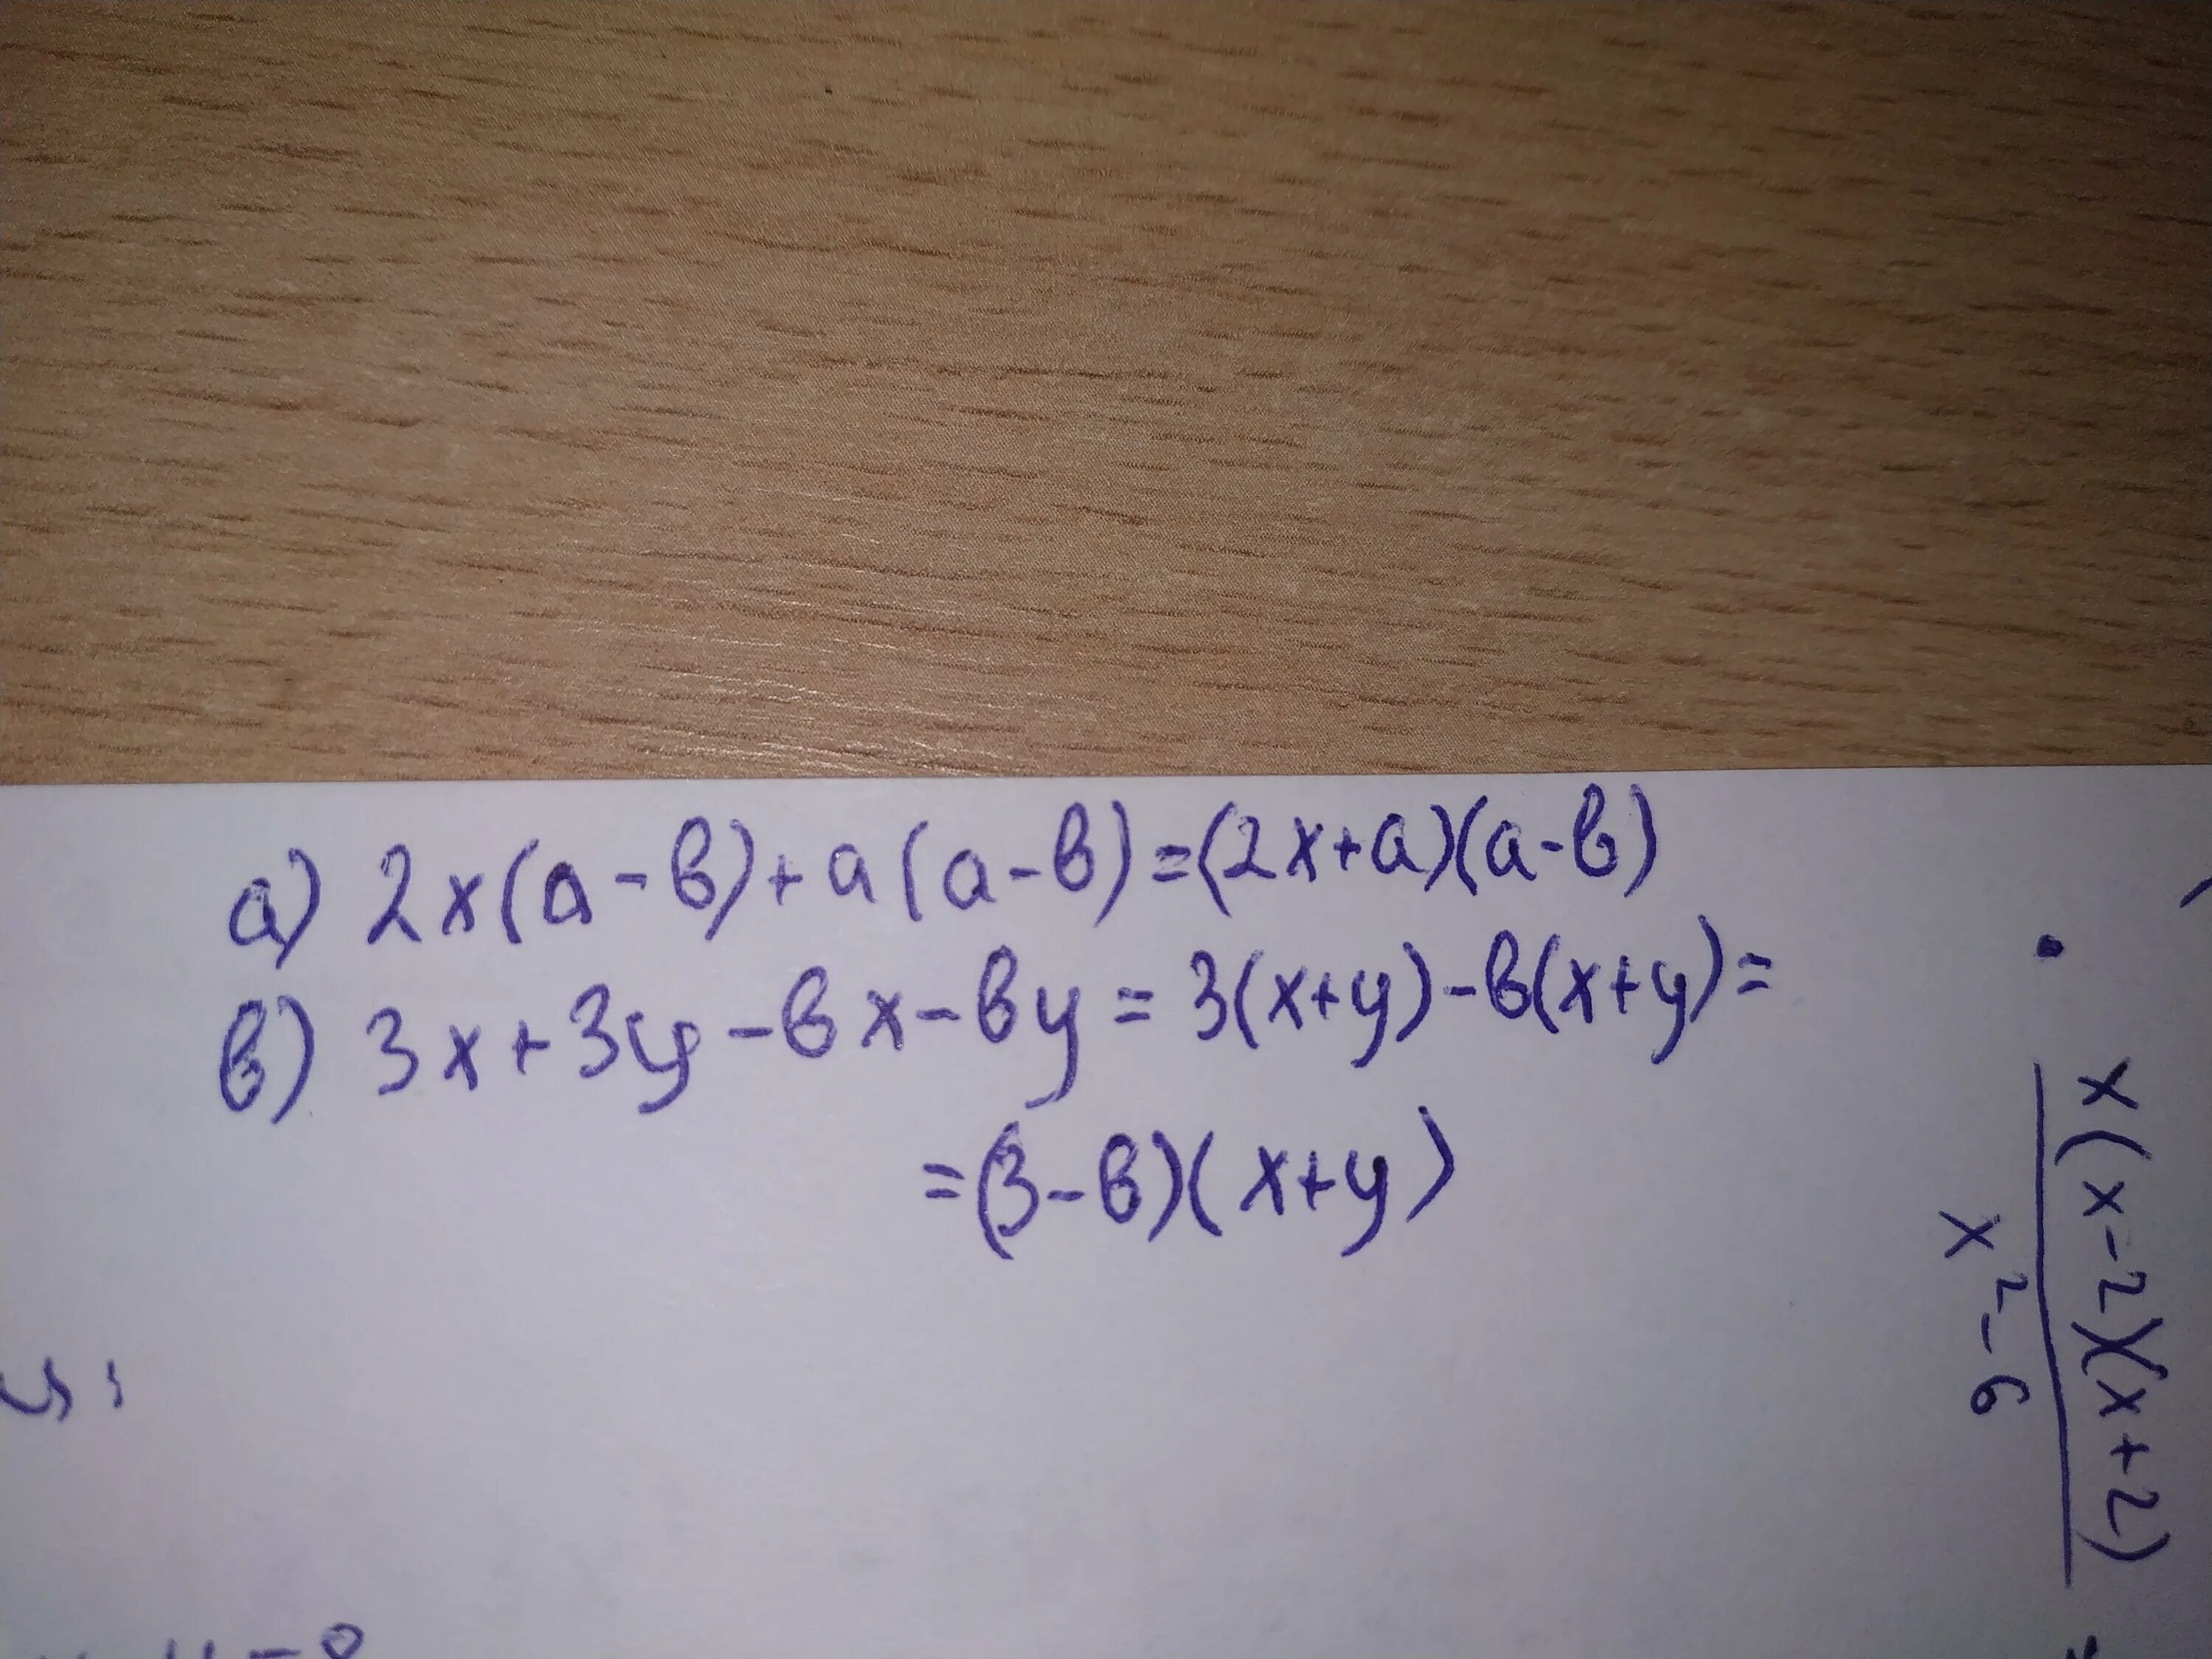 a) 2x(a-b)+a(a-b)=(2x+a)(a-b)
b) 3x+3y-bx-by=3(x+y)-b(x+y)=
=(3-b)(x+y)
x(x-2)(x+2)
x²-6